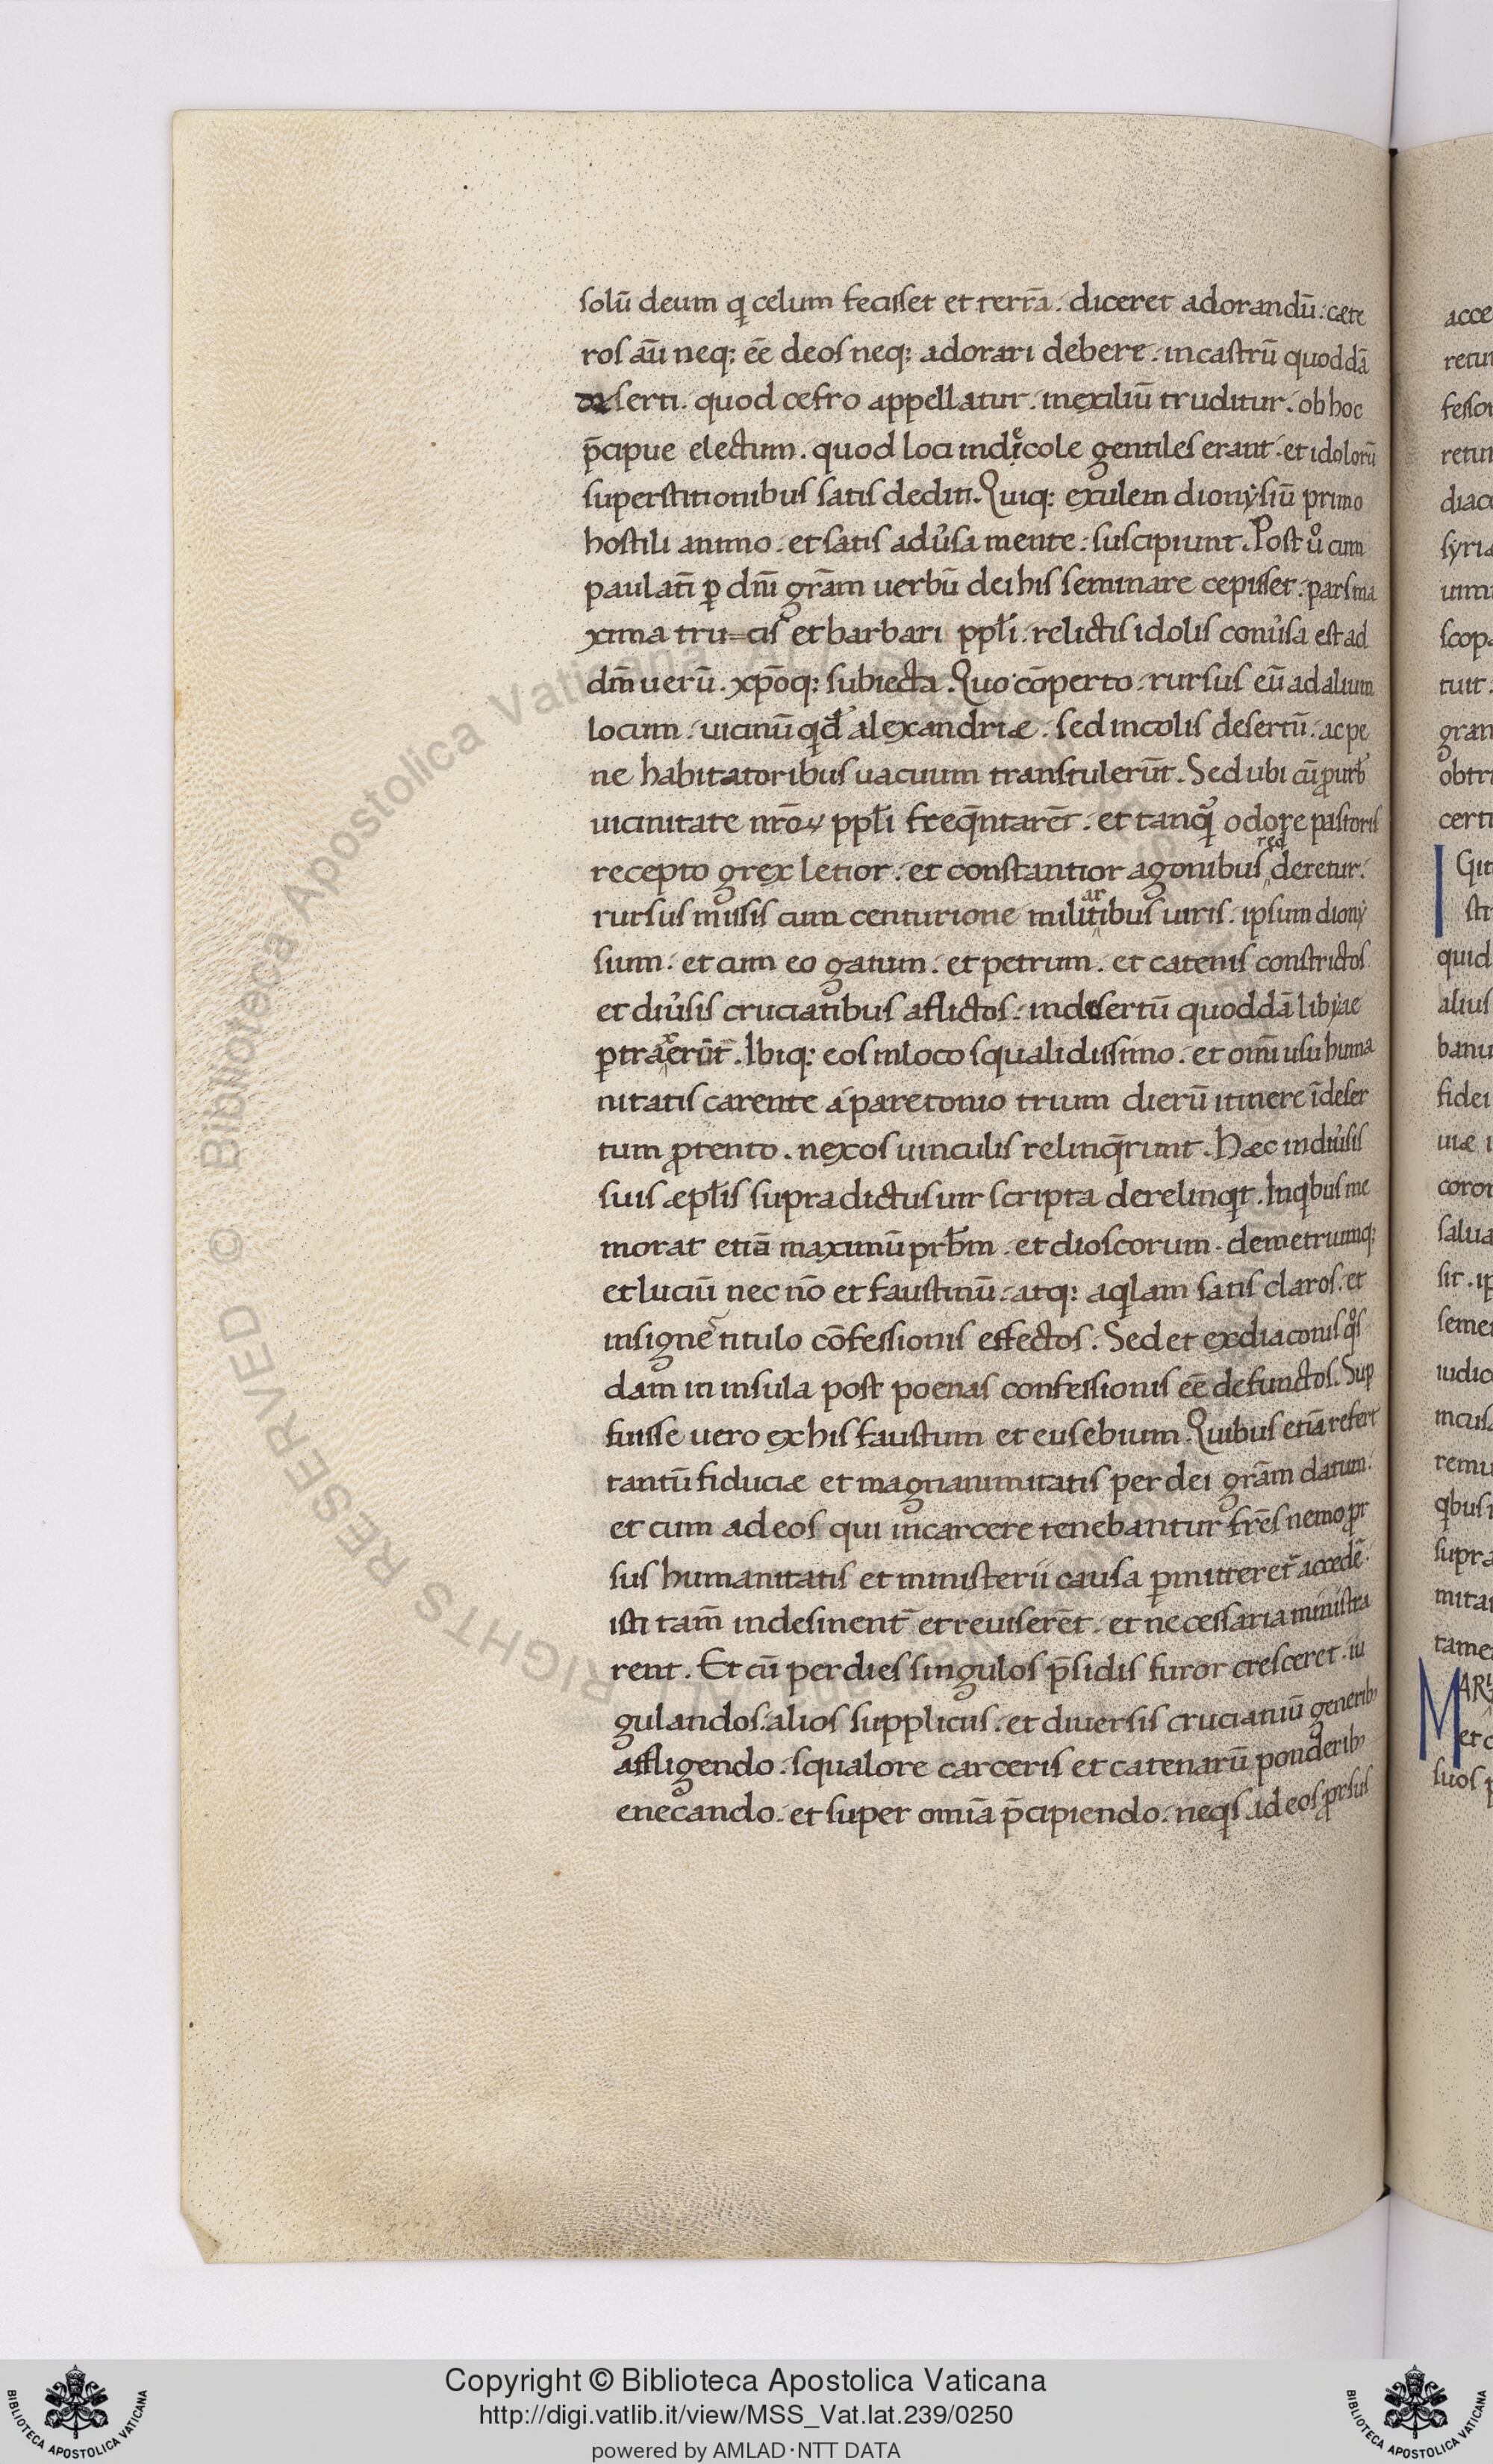 solū deum q celum fecisset et terrā. diceret adorandū: cæte
ros aū neq: eē deos neq: adorari debere. in castrū quoddā
deserti. quod cefro appellatur. in exiliū truditur. ob hoc
p̄cipue electum. quod loci indicole gentiles erant. et idolorū
superstitionibus satis dediti. Quiq: exulem dionysiū primo
hostili animo. et satis adu̓sa mente: suscipiunt. Post ů cum
paulatī ꝑ dnī grām uerbū dei his seminare cepisset. pars ma
xima trucis et barbari ppl̄i. relictis idolis conu̓sa est ad
dm̄ uerū. xp̄oq: subiecta. Quo cōperto. rursus eū ad alium
locum. uicinū qd̄ alexandriæ. sed incolis desertū. ac pe
ne habitatoribus uacuum transtulerūt. Sed ubi cū ꝓ urb̄
uicinitate nr̄oꝝ ppl̄i freqn̄tarēt. et tanq̄ odore pastoris
recepto grex letior. et constantior agonibus redderetur.
rursus missis cum centurione militaribus uiris. ipsum diony
sium. et cum eo gaium. et petrum. et catenis constrictos
et diu̓sis cruciatibus aflictos. in desertū quoddā libyae
ꝑtraxerūt. Ibiq: eos in loco squalidissimo. et omī usu huma
nitatis carente a paretonio trium dierū itinere ī deser
tum ꝓtento. nexos uinculis relinq̄runt. Hæc in diu̓sis
suis æpl̄is supradictus uir scripta derelinqt. In qbus me
morat etiā maximū prb̄m. et dioscorum. demetriumq:
et luciū nec nō et faustinū. atq: aqlam satis claros. et
insigne titulo cōfessionis effectos. Sed et ex diaconis qōs
dam in insula post poenas confessionis eē defunctos. Sup
fuisse uero ex his faustum et eusebium. Quibus etiā refert
tantū fiduciæ et magnanimitatis per dei grām datum.
et cum ad eos qui in carcere tenebantur frēs nemo ꝓr
sus humanitatis et ministerii causa ꝑmitteret̄ accedē.
isti tam̄ indesinent̄ et reuiserēt. et necessaria ministra
rent. Et cū per dies singulos p̄sidis furor cresceret. iu
gulandos. alios suppliciis. et diuersis cruciatiū generib;
affligendo. squalore carceris et catenarū ponderib;
enecando. et super omīa p̄cipiendo. neqs ad eos ꝓrsus
acce
retur
fessor
retur
diaco
syria
uimi
scopa
tuit.
gran
obtri
certi
IGit
str
quid
alius
banu
fidei
uiæ i
coron
salua
sit. ip
semet
iudic
incusa
remu
qbus i
supra
mitat
tame
MAR
et c
suos p
Copyright © Biblioteca Apostolica Vaticana
http://digi.vatlib.it/view/MSS_Vat.lat.239/0250
powered by AMLAD·NTT DATA
BIBLIOTECA APOSTOLICA VATICANA
BIBLIOTECA APOSTOLICA VATICANA